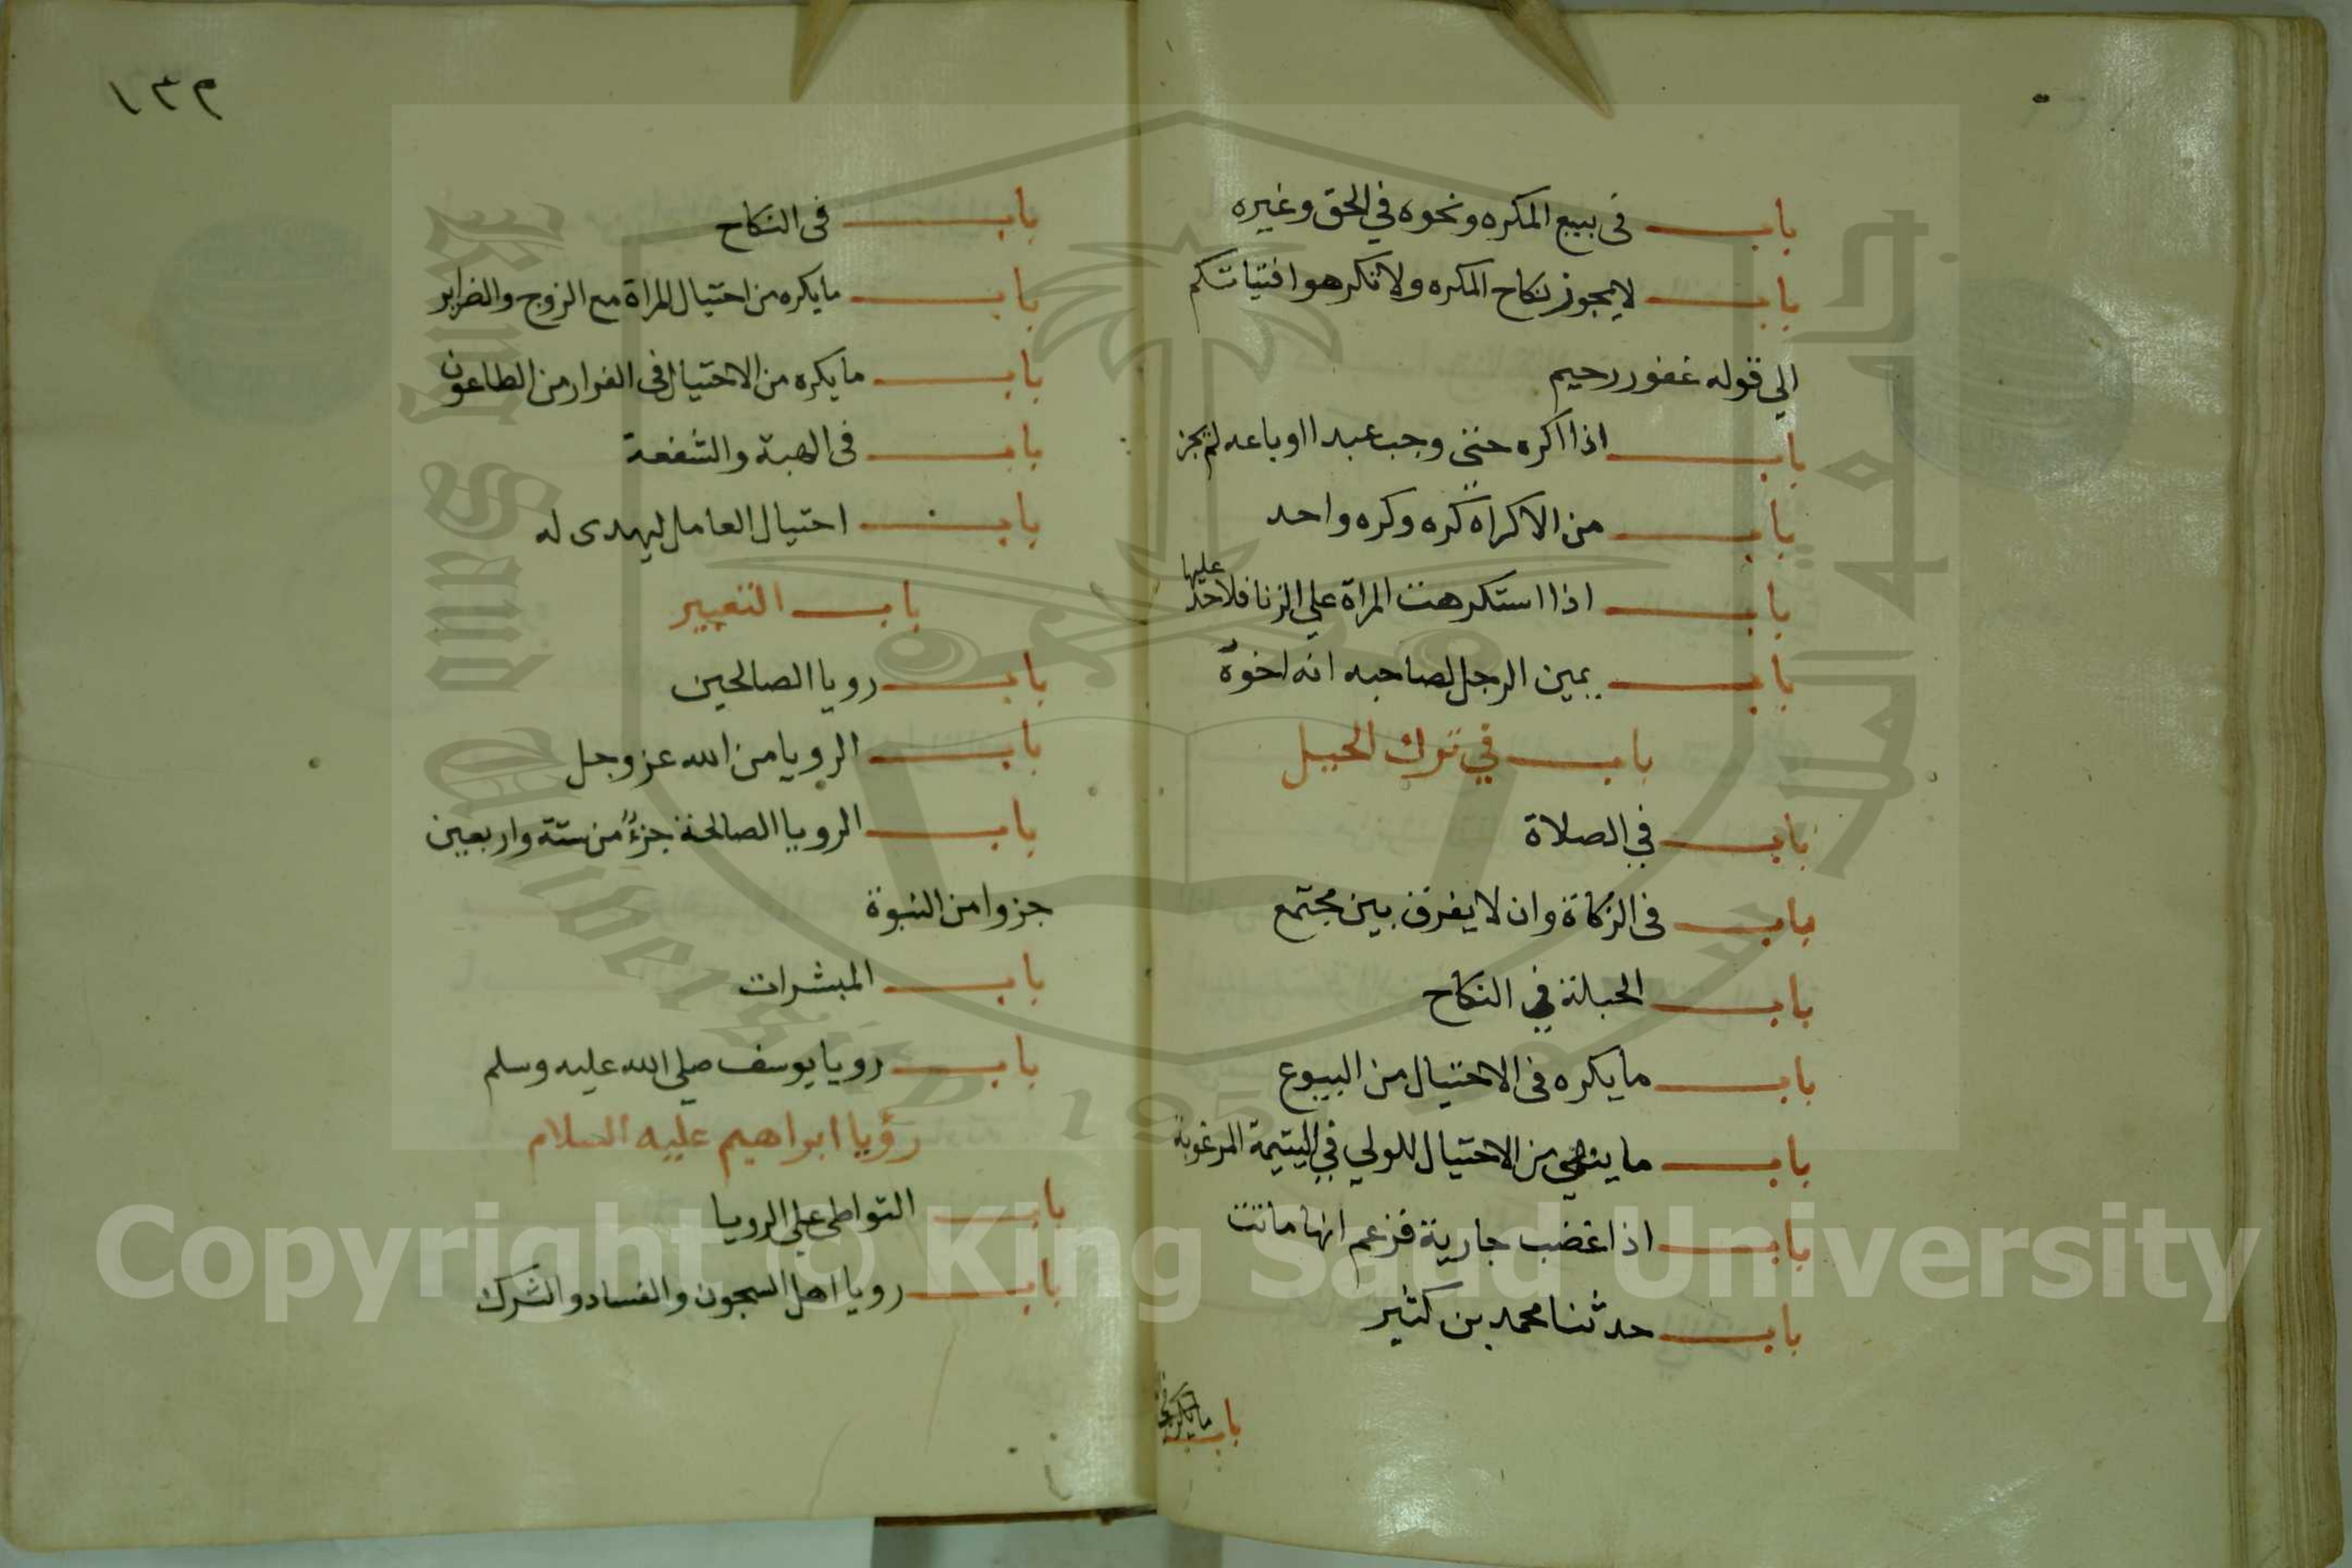 باب في بيع المكره ونحوه في الحق وغيره
باب لا يجوز نكاح المكره ولا تكرهوا فتياتكم
الي قوله غفور رحيم
باب اذا اكره حتي وهب عبدا او باعه لم يجز
باب من الاكراه كره وكره واحد
باب اذا استكرهت المراة علي الزنا فلا حد عليها
باب يمين الرجل لصاحبه انه اخوه
باب في ترك الحيل
باب في الصلاة
باب في الزكاة وان لا يفرق بين مجتمع
باب الحيلة في النكاح
باب ما يكره في الاحتيال من البيوع
باب ما ينهي من الاحتيال للولي في اليتيمة المرغوبة
باب اذا غضب جارية فزعم انها ماتت
باب حدثنا محمد بن كثير
باب
١٣٢
باب في النكاح
باب ما يكره من احتيال المراة مع الزوج والضراير
باب ما يكره من الاحتيال في الفرار من الطاعون
باب في الهبة والشفعة
باب احتيال العامل ليهدى له
باب التعبير
باب رويا الصالحين
باب الرويا من الله عز وجل
باب الرويا الصالحة جزءٌ من ستة واربعين
جزوا من النبوة
باب المبشرات
باب رويا يوسف صلي الله عليه وسلم
رؤيا ابراهيم عليه السلام
باب التواطي علي الرويا
باب رويا اهل السجون والفساد والشرك
King Saud University
1957
جامعة الملك سعود
Copyright © King Saud University